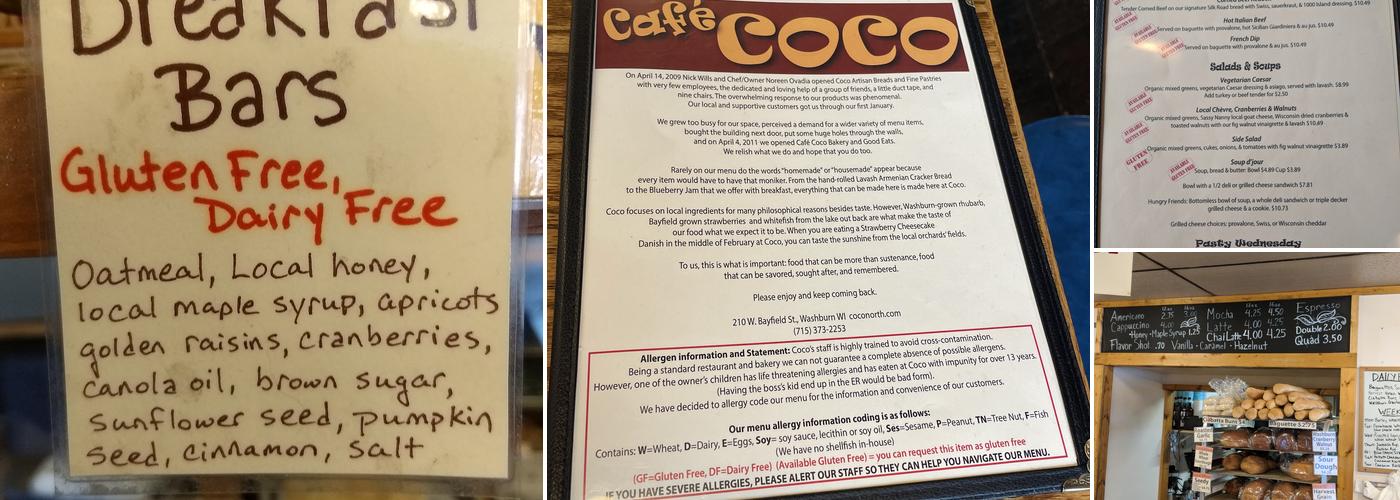 Breakfast
Bars
Gluten Free,
Dairy Free
Oatmeal, Local honey,
local maple syrup, apricots
golden raisins, cranberries,
canola oil, brown sugar,
sunflower seed, pumpkin
seed, cinnamon, salt
Café COCO
On April 14, 2009 Nick Wills and Chef/Owner Noreen Ovadia opened Coco Artisan Breads and Fine Pastries
with very few employees, the dedicated and loving help of a group of friends, a little duct tape, and
nine chairs. The overwhelming response to our products was phenomenal.
Our local and supportive customers got us through our first January.
We grew too busy for our space, perceived a demand for a wider variety of menu items,
bought the building next door, put some huge holes through the walls,
and on April 4, 2011 we opened Café Coco Bakery and Good Eats.
We relish what we do and hope that you do too.
Rarely on our menu do the words "homemade" or "housemade" appear because
every item would have to have that moniker. From the hand-rolled Lavash Armenian Cracker Bread
to the Blueberry Jam that we offer with breakfast, everything that can be made here is made here at Coco.
Coco focuses on local ingredients for many philosophical reasons besides taste. However, Washburn-grown rhubarb,
Bayfield grown strawberries and whitefish from the lake out back are what make the taste of
our food what we expect it to be. When you are eating a Strawberry Cheesecake
Danish in the middle of February at Coco, you can taste the sunshine from the local orchards' fields.
To us, this is what is important: food that can be more than sustenance, food
that can be savored, sought after, and remembered.
Please enjoy and keep coming back.
210 W. Bayfield St., Washburn WI coconorth.com
(715) 373-2253
Allergen information and Statement: Coco's staff is highly trained to avoid cross-contamination.
Being a standard restaurant and bakery we can not guarantee a complete absence of possible allergens.
However, one of the owner's children has life threatening allergies and has eaten at Coco with impunity for over 13 years.
(Having the boss's kid end up in the ER would be bad form).
We have decided to allergy code our menu for the information and convenience of our customers.
Our menu allergy information coding is as follows:
Contains: W=Wheat, D=Dairy, E=Eggs, Soy= soy sauce, lecithin or soy oil, Ses=Sesame, P=Peanut, TN=Tree Nut, F=Fish
(We have no shellfish in-house)
(GF=Gluten Free, DF=Dairy Free) (Available Gluten Free) = you can request this item as gluten free
IF YOU HAVE SEVERE ALLERGIES, PLEASE ALERT OUR STAFF SO THEY CAN HELP YOU NAVIGATE OUR MENU.
Tender Corned Beef on our signature Silk Road bread with Swiss, sauerkraut, & 1000 Island dressing. $10.49
Hot Italian Beef
Served on baguette with provolone, hot Sicilian Giardiniera & au jus. $10.49
French Dip
Served on baguette with provolone & au jus. $10.49
Salads & Soups
Vegetarian Caesar
Organic mixed greens, vegetarian Caesar dressing & asiago, served with lavash. $8.99
Add turkey or beef tender for $2.50
Local Chèvre, Cranberries & Walnuts
Organic mixed greens, Sassy Nanny local goat cheese, Wisconsin dried cranberries &
toasted walnuts with our fig walnut vinaigrette & lavash $10.69
Side Salad
Organic mixed greens, cukes, onions, & tomatoes with fig walnut vinaigrette $3.89
GLUTEN FREE
Soup d'jour
Soup, bread & butter: Bowl $4.89 Cup $3.89
Bowl with a 1/2 deli or grilled cheese sandwich $7.81
Hungry Friends: Bottomless bowl of soup, a whole deli sandwich or triple decker
grilled cheese & a cookie. $10.73
Grilled cheese choices: provolone, Swiss, or Wisconsin cheddar
Pasty Wednesday
Americano 2.75 3.00
Cappuccino 4.00
Honey · Maple Syrup 1.25
Flavor Shot .70 Vanilla · Caramel · Hazelnut
12oz 16oz
Mocha 4.25 4.50
Latte 4.00 4.25
Chai Latte 4.00 4.25
Espresso
Double 2.00
Quad 3.50
Ciabatta Buns
Baguette $2.75
Roasted Garlic
Washburn Cranberry Walnut
Sour Dough
Seedy
Harvest Grain